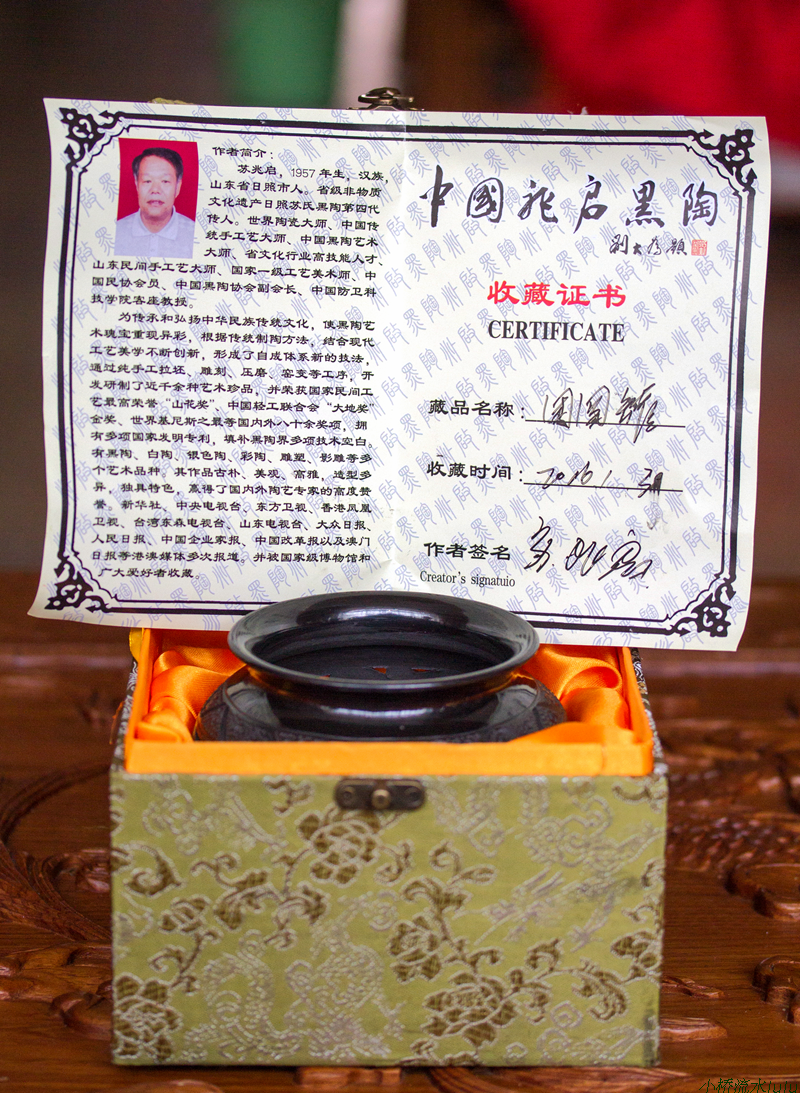 作者简介：
苏兆启，1957年生，汉族，
山东省日照市人。省级非物质
文化遗产日照苏氏黑陶第四代
传人。世界陶瓷大师、中国传
统手工艺大师、中国黑陶艺术
大师、省文化行业高技能人才、
山东民间手工艺大师、国家一级工艺美术师、中
国民协会员、中国黑陶协会副会长、中国防卫科
技学院客座教授。
为传承和弘扬中华民族传统文化，使黑陶艺
术瑰宝重现异彩，根据传统制陶方法，结合现代
工艺美学不断创新，形成了自成体系新的技法，
通过纯手工拉坯、雕刻、压磨、窑变等工序，开
发研制了近千余种艺术珍品，并荣获国家民间工
艺最高荣誉“山花奖”、中国轻工联合会“大地奖”
金奖、世界基尼斯之最等国内外八十余奖项，拥
有多项国家发明专利，填补黑陶界多项技术空白。
有黑陶、白陶、银色陶、彩陶、雕塑、影雕等多
个艺术品种。其作品古朴、美观、高雅，造型多
异，独具特色，赢得了国内外陶艺专家的高度赞
誉。新华社、中央电视台、东方卫视、香港凤凰
卫视、台湾东森电视台、山东电视台、大众日报、
人民日报、中国企业家报、中国改革报以及澳门
日报等港澳媒体多次报道。并被国家级博物馆和
广大爱好者收藏。
中國兆启黑陶
劉大为題
收藏证书
CERTIFICATE
藏品名称：
收藏时间：2016 1 3月
作者签名 苏兆启
Creator's signatuio
小桥流水lulu